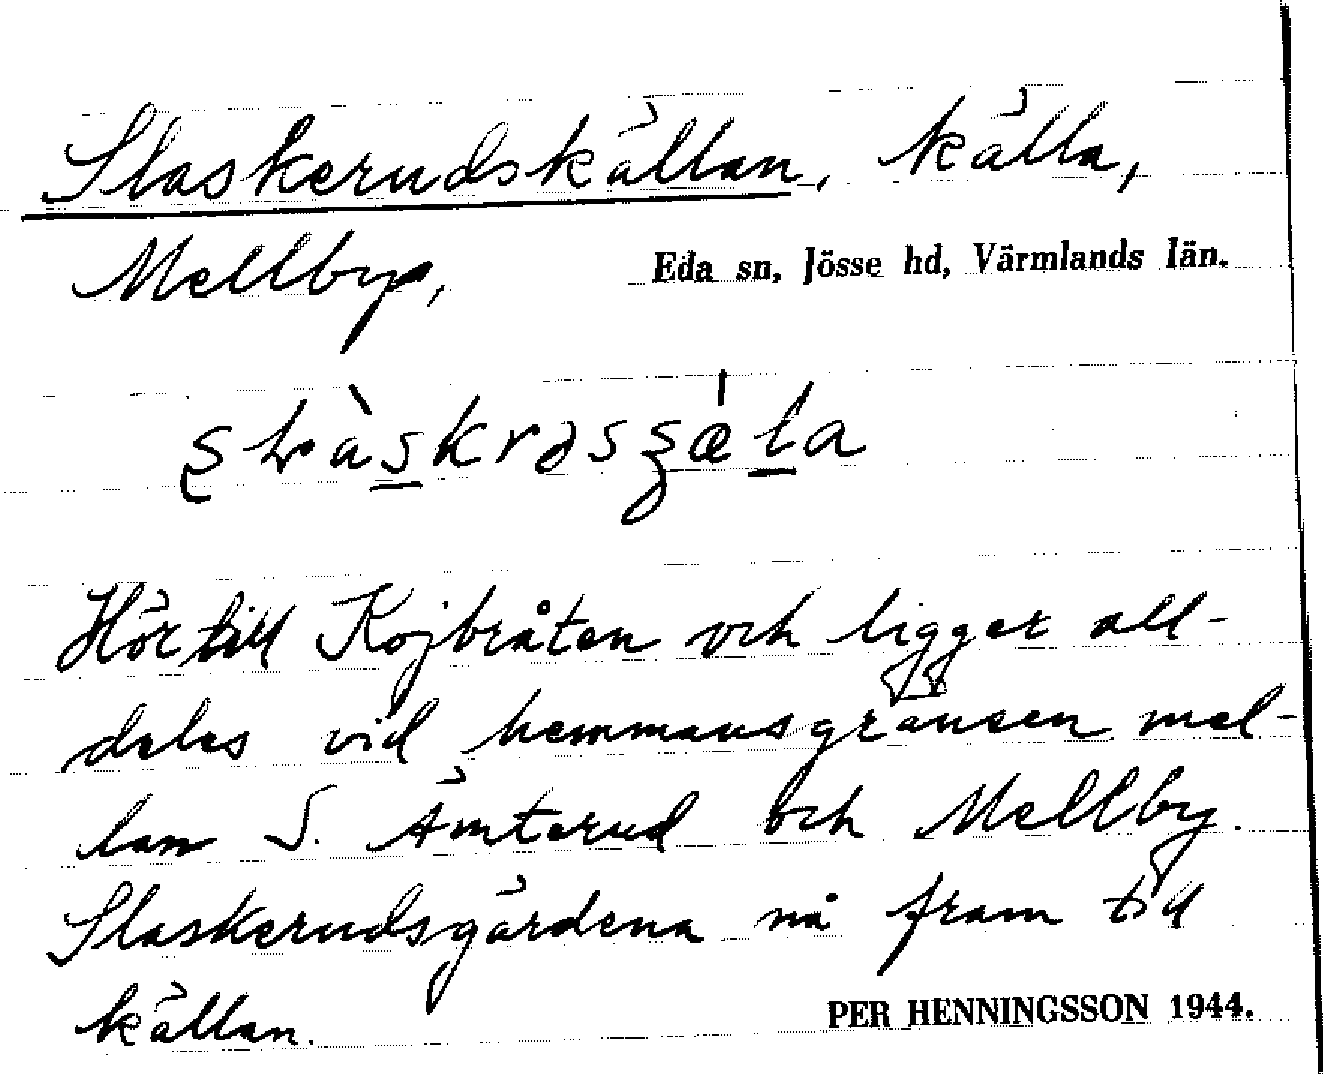 Slaskerudskällan, källa,
Mellby, Eda sn, Jösse hd, Värmlands län.
Hör till Kojbråten och ligger all-
deles vid hemmansgränsen mel-
lan S. Ämterud och Mellby.
Slaskerudsgärdena nå fram till
källan.
PER HENNINGSSON 1944.